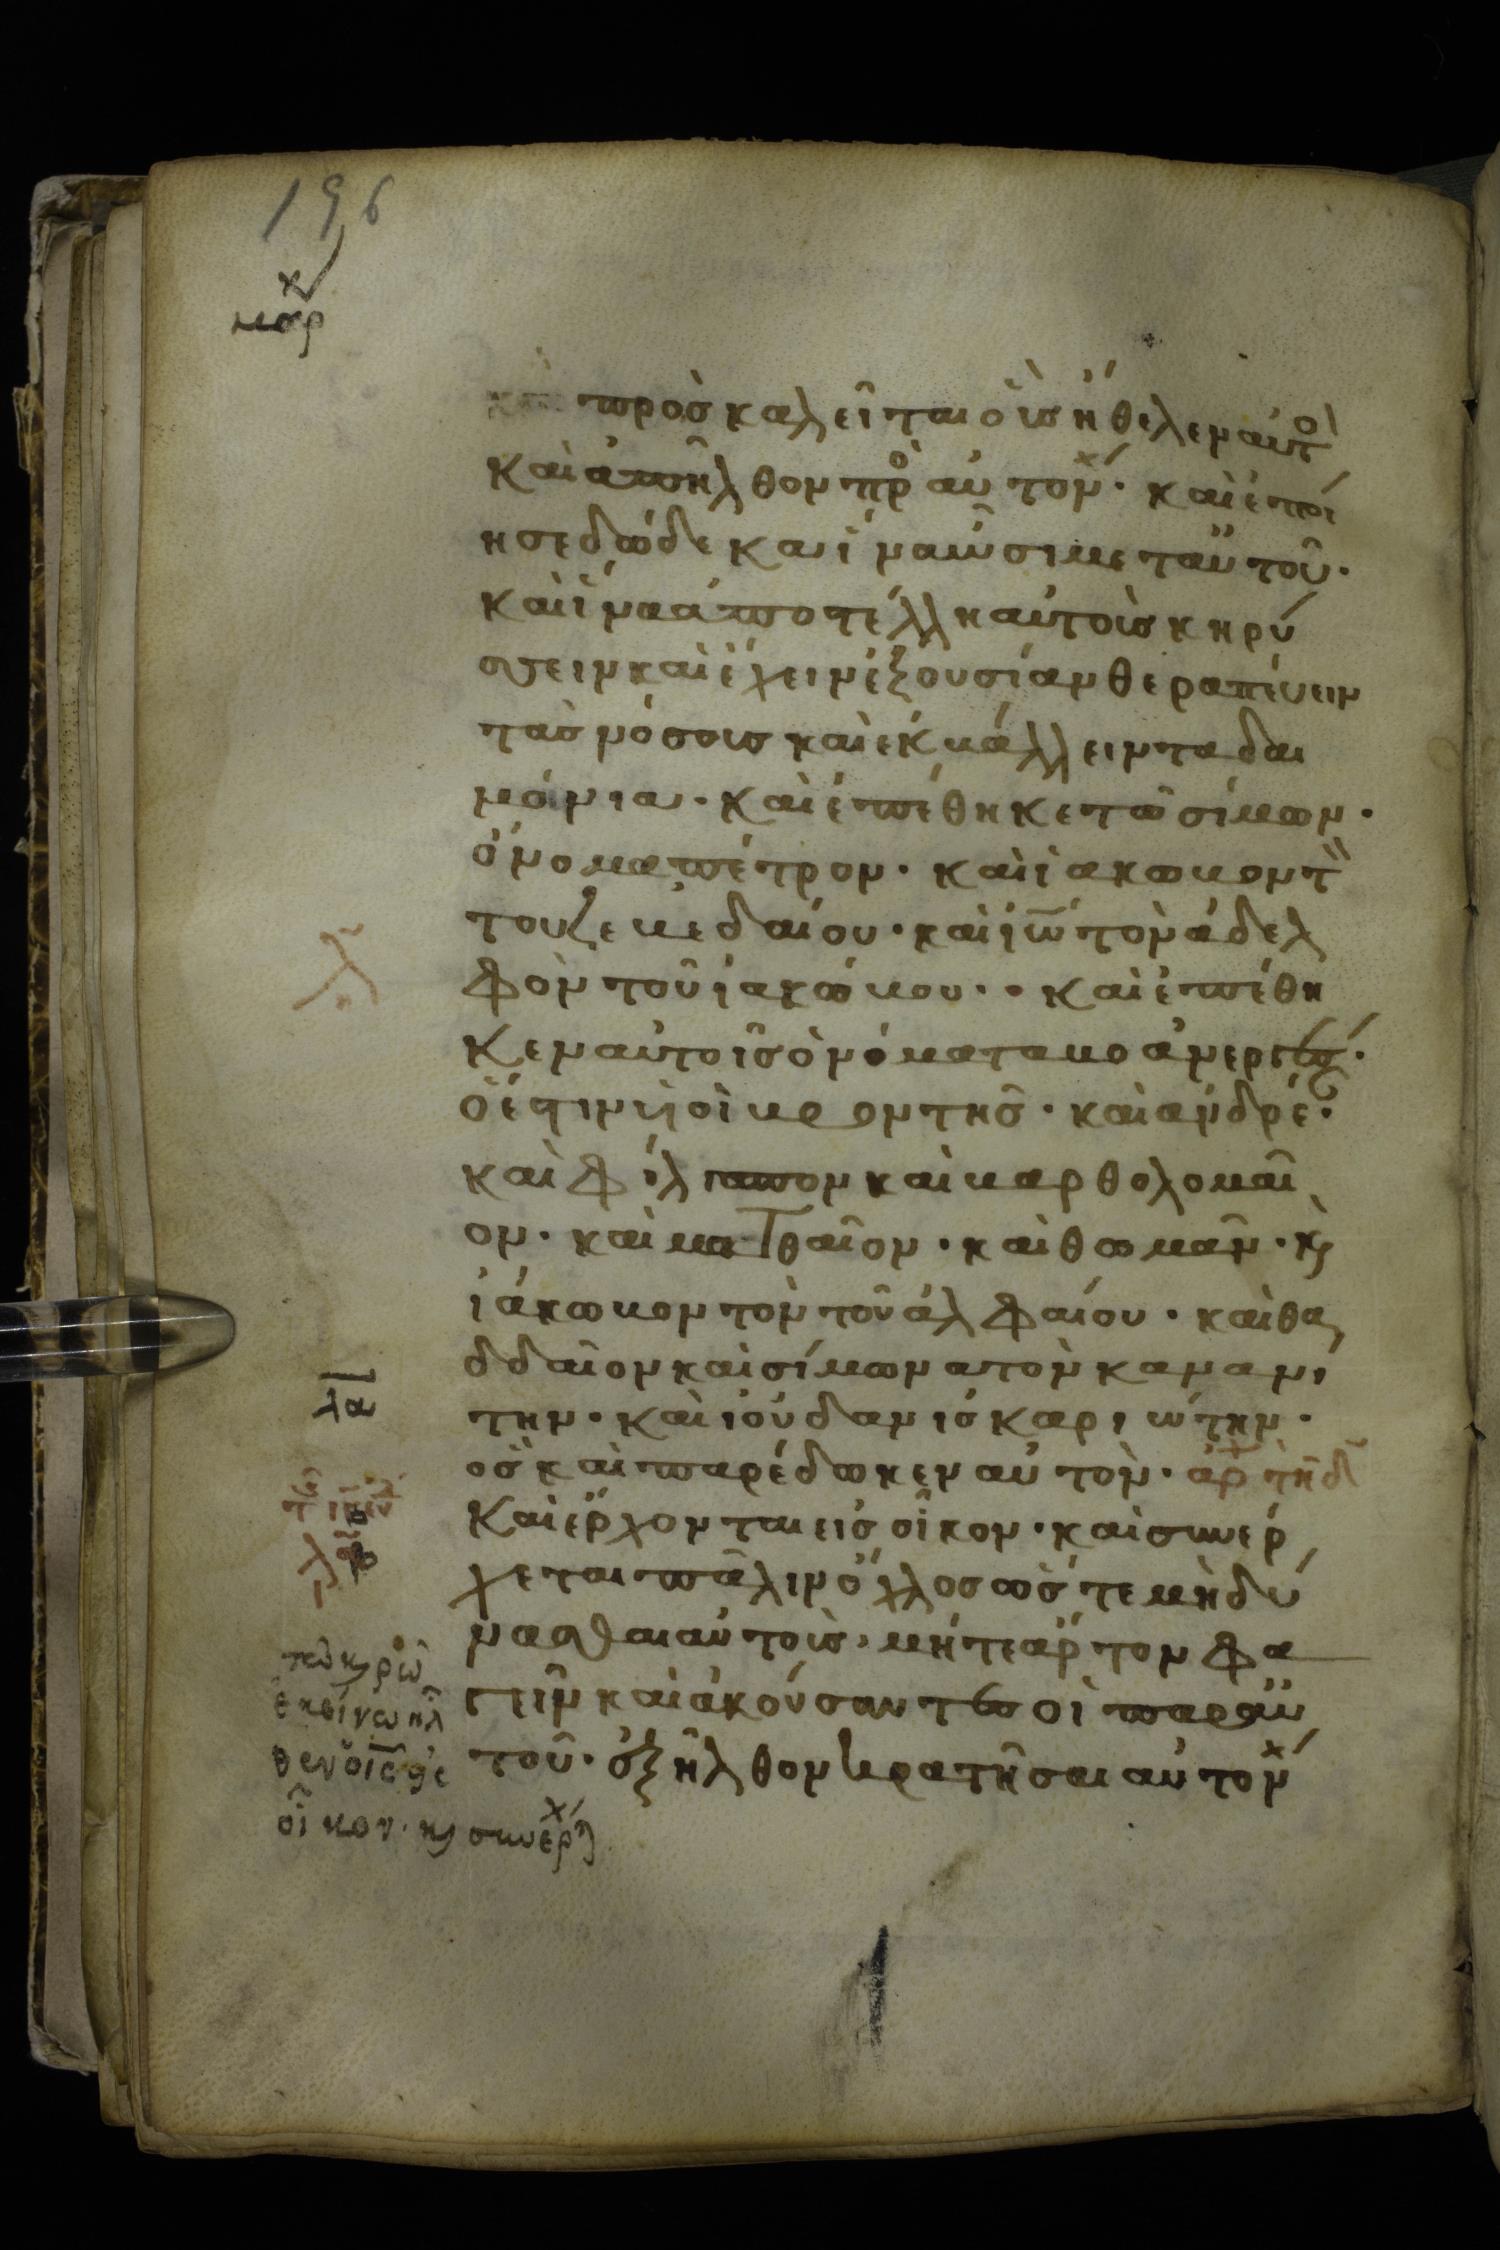 196
μαρ
καὶ προσκαλεῖται οὓς ἤθελεν αὐτο
καὶ ἀπῆλθον πρὸ αὐτόν· καὶ ἐποί
ησε δώδεκα ἵνα ὦσι μετ αὐτοῦ·
καὶ ἵνα ἀποστέλλη αὐτοὺς κηρύ
σσειν καὶ ἔχειν ἐξουσίαν θεραπεύειν
τὰς νόσους καὶ ἐκβάλλειν τα δαι
μόνια· καὶ ἐπέθηκε τῶ σίμων·
ὄνομα πέτρον· καὶ ἰάκωβον τ
του ζεβεδαίου· καὶ ἰω τὸν ἀδελ
φὸν τοῦ ἰακώβου·· καὶ ἐπέθη
κεν αὐτοῖς ὀνόματα βοανεργές·
ὅ ἐστιν υἱοὶ βροντῆς· καὶ ἀνδρέ·
καὶ φίλιππον καὶ βαρθολομαῖ
ον· καὶ ματθαῖον· καὶ θωμᾶν· κὶ
ἰάκωβον τὸν τοῦ ἀλφαίου· καὶ θα
δδαῖον καὶ σίμωνα τὸν κανανί
την· καὶ ἰούδαν ἰσκαριώτην·
ὃς καὶ παρέδωκεν αὐτὸν· ἀρ τῆ δ
Καὶ ἔρχονται εἰς οἶκον· καὶ συνέρ
χεται πάλιν ὄχλος ὥστε μὴ δύ
νασθαι αὐτοὺς, μήτε ἄρτον φα
γεῖν καὶ ἀκούσαντες οἱ παρ αὐ
τοῦ· ἐξῆλθον κρατῆσαι αὐτόν
λα
τῶ κρῶ
ἐκείνω ἦλ
θεν ὁ ις εἰς
οἶκον· κὶ συνέρχ